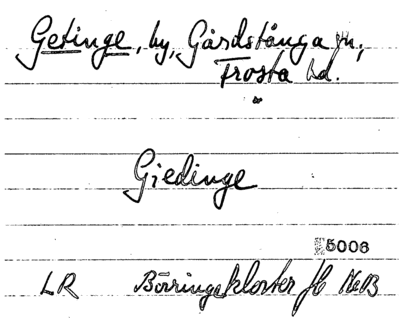 Getinge, by, Gårdstånga sn,
Frosta hd.
Giedinge
5006
LR Börringekloster